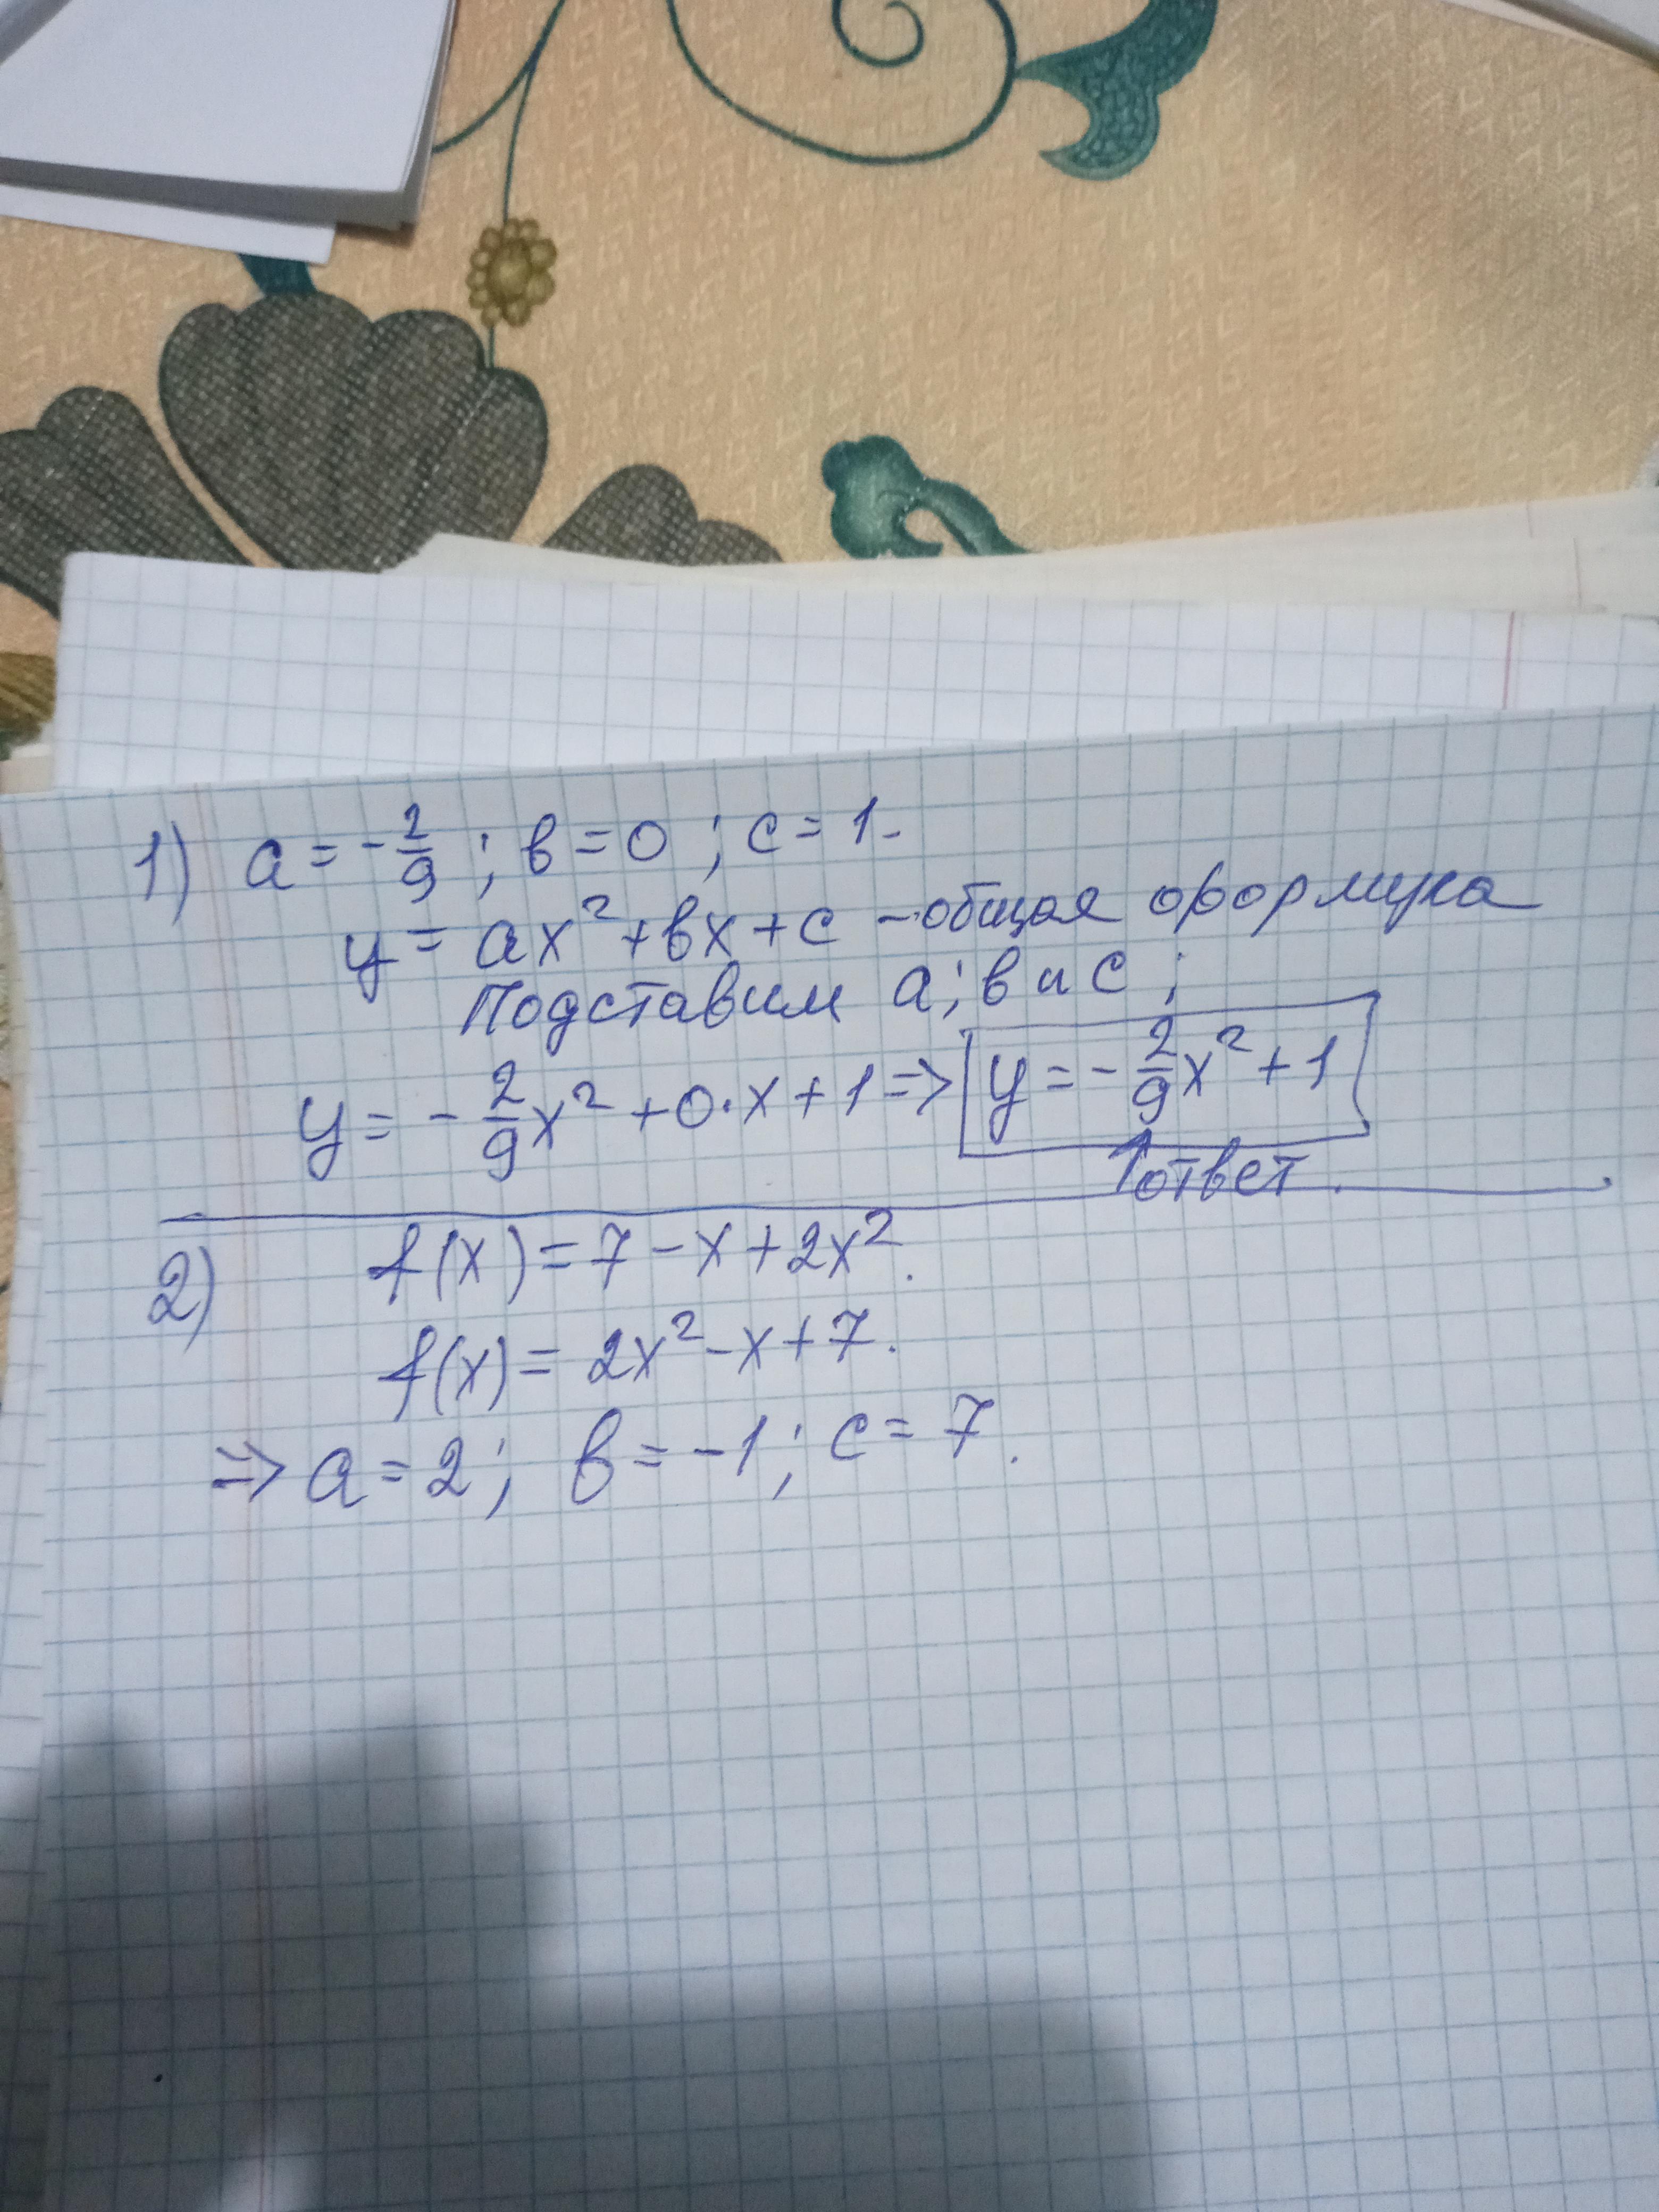 1) a = -2/9 ; в = 0 ; c = 1.
y = ax² + вx + c - общая формула
Подставим a; в и c ;
y = - 2/9 x² + 0·x + 1 => y = - 2/9 x² + 1
↑ответ.
2) f(x) = 7 - x + 2x².
f(x) = 2x² - x + 7.
=> a = 2; в = -1; c = 7.